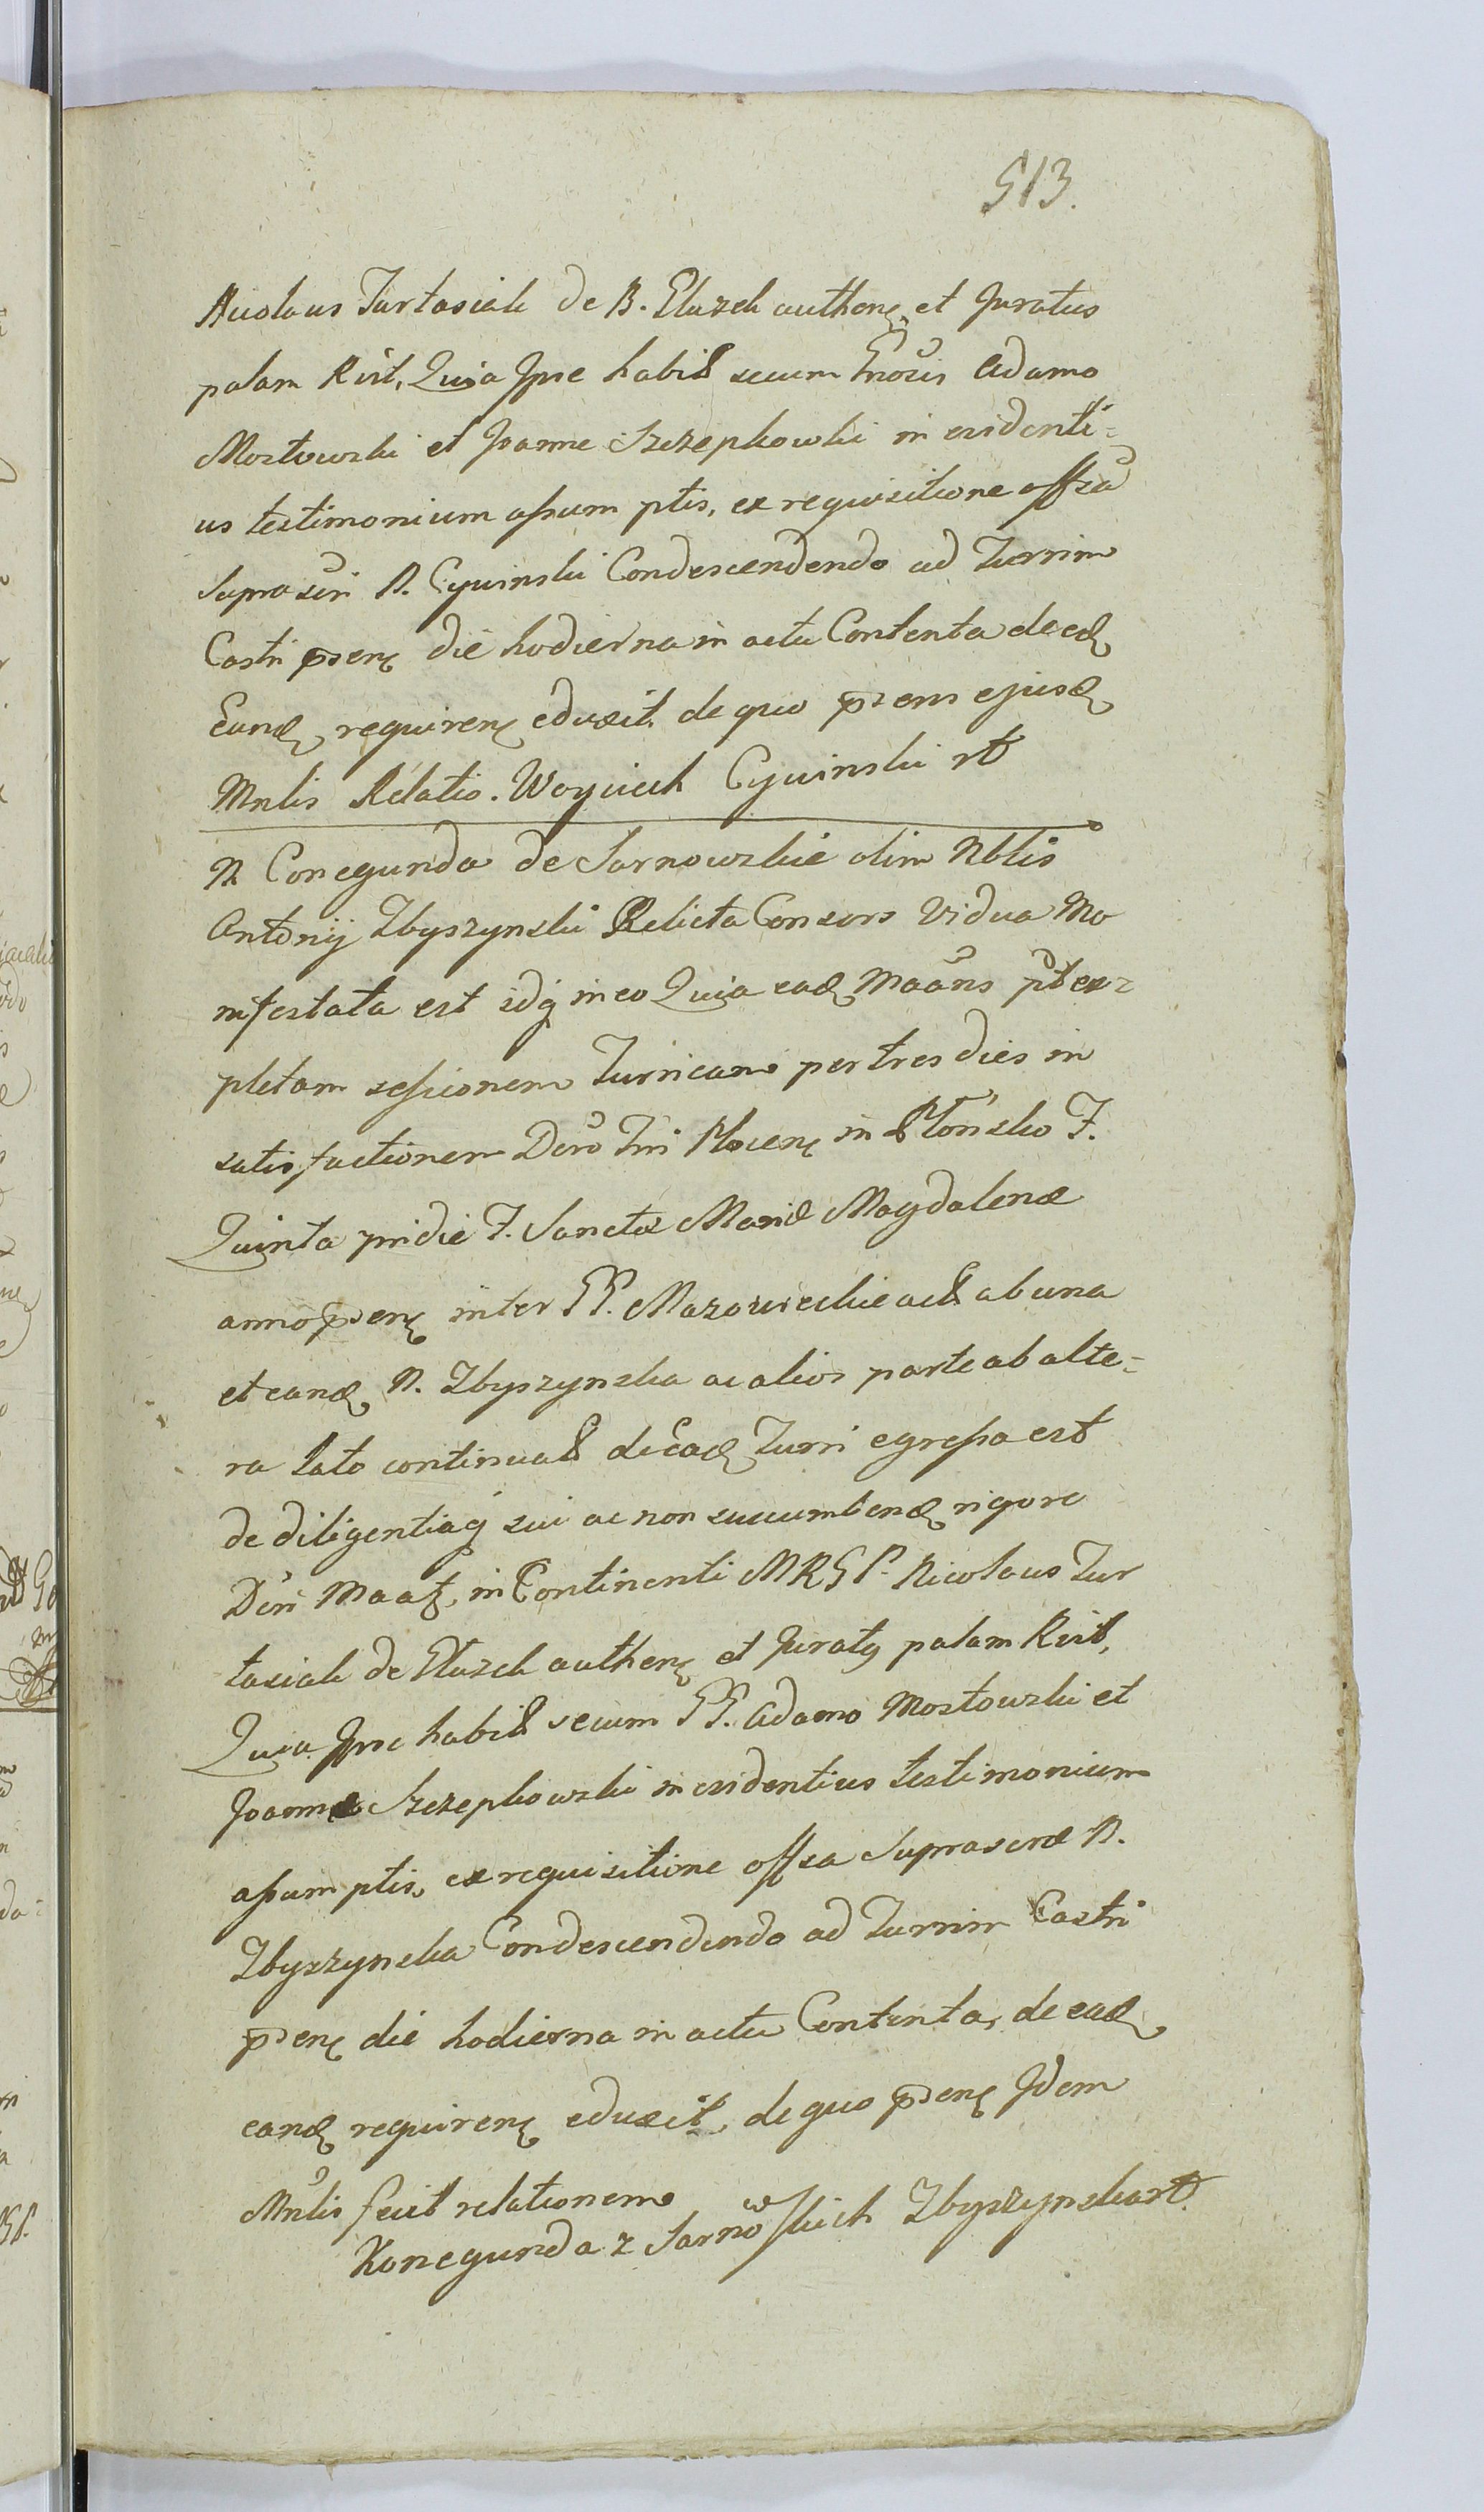 513.
Nicolaus Turtasiak de B. Płuzek authenꝫ et Juratus
palam Rvit, Quia Ipse habitꝭ secum Gnosis Adamo
Mostowski et Joanne Szczepkowski in evidenti=
us testimonium assumptis, ex requisitione offsa
Suprascri N. Cywinski Condescendendo ad Turrim
Castri p̄senꝫ die hodierna in actu Contenta de eadꝫ
Eandꝫ requirenꝫ eduxit de quo p̄sens ejusdꝫ
Mnlis Relatio. Woyciech Cywinski rt
N Conegunda de Sarnowskie olim Nblis
Antonij Zbyszynski Relicta Consors Vidua Ma
nifestata est idq in eo Quia eadꝫ Maans pt ex=
pletam sessionem Turricam per tres dies in
satisfactionem Dero Tri Plocenꝫ in Płońsko F.
Quinta pridie F. Sanctæ Mariæ Magdalenæ
anno p̄senꝫ inter PP. Mazowieckie actꝭ ab una
et eandꝫ N. Zbyszynska ac alios parte ab alte=
ra lato continuatꝭ de eadꝫ Turri egressa est
de diligentiaq sui ac non succumbendꝫ rigore
Deri Maatꝫ, in Continenti MRGP. Nicolaus Tur
tasiak de Płuzek authenꝫ et Juratq palam Rvit,
Quia Ipse habitꝭ secum PP. Adamo Mostowski et
Joanne Szczepkowski in evidentius testimonium
assumptis, ex requisitione offsa Suprascræ N.
Zbyszynska Condescendendo ad Turrim Castri
p̄senꝫ die hodierna in actu Contenta, de eadꝫ
eandꝫ requirenꝫ eduxit, de quo p̄senꝫ Idem
Mnlis fecit relationem
Konegunda z Sarnowskich Zbyszynska rt.